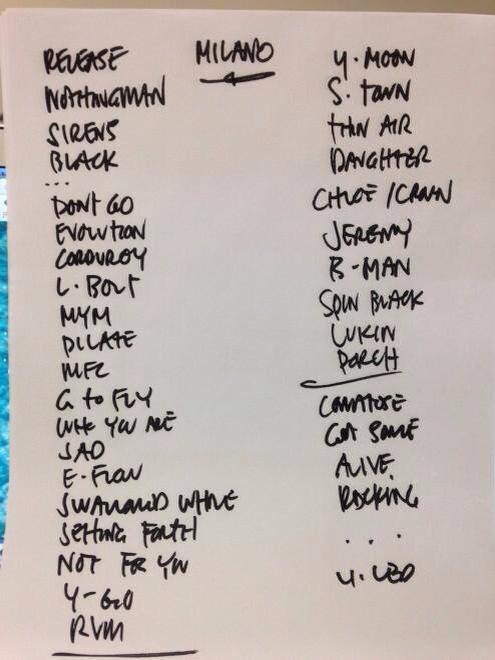 MILANO
RELEASE
NOTHINGMAN
SIRENS
BLACK
...
DONT GO
EVOLUTION
CORDUROY
L. BOLT
MYM
DILATE
MFC
G to FLY
WHO YOU ARE
SAD
E-FLOW
SWALLOWED WHOLE
SETTING FORTH
NOT FR YOU
Y-LEO
RVM
Y. MOON
S. TOWN
THIN AIR
DAUGHTER
CHLOE / CROWN
JEREMY
B-MAN
SPIN BLACK
LUKIN
PORCH
COMATOSE
GOT SOME
ALIVE
ROCKING
...
Y. LED